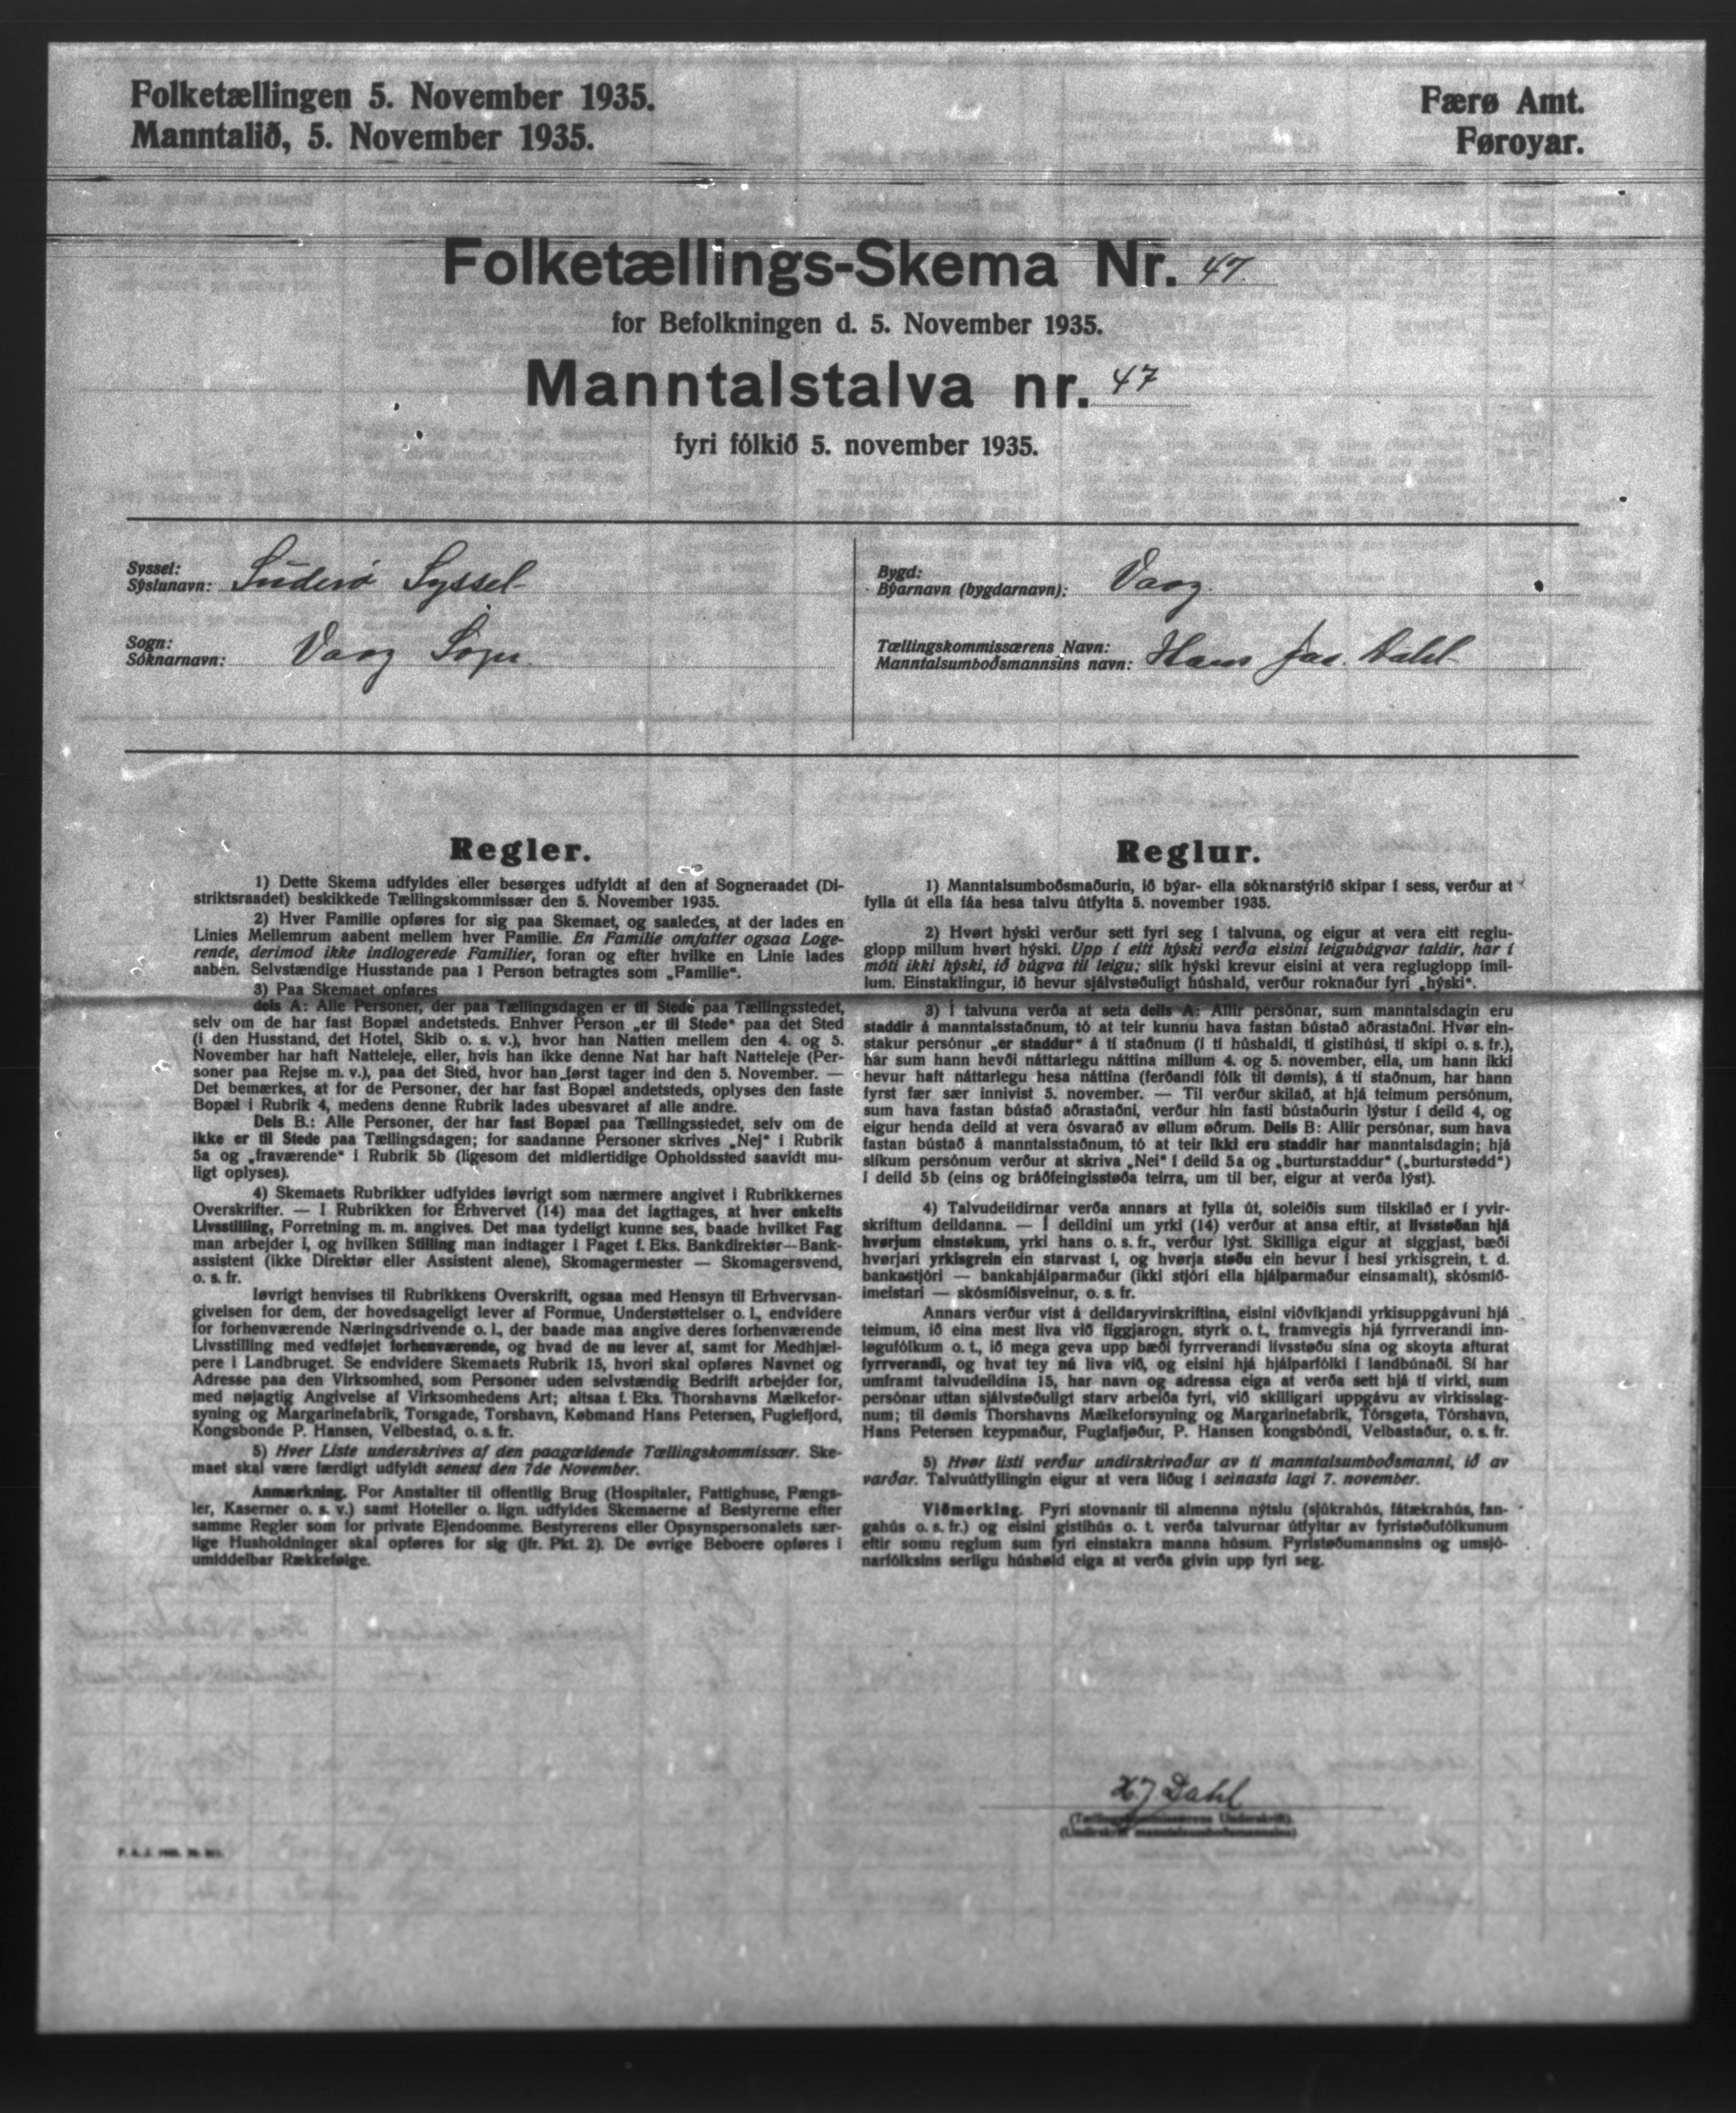 Folketællingen 5. November 1935.
Manntalið, 5. November 1935.
Færø Amt.
Føroyar.
Folketællings-Skema Nr. 47.
for Befolkningen d. 5. November 1935.
Manntalstalva nr. 47
fyri fólkið 5. november 1935.
Syssel:
Sýslunavn: Suderø Syssel
Sogn:
Sóknarnavn: Vaag Sogn
Bygd:
Býarnavn (bygdarnavn): Vaag
Tællingskommissærens Navn:
Manntalsumboðsmannsins navn: Hans Jac. Dahl
Regler.
1) Dette Skema udfyldes eller besørges udfyldt af den af Sogneraadet (Di-
striktsraadet) beskikkede Tællingskommissær den 5. November 1935.
2) Hver Familie opføres for sig paa Skemaet, og saaledes, at der lades en
Linies Mellemrum aabent mellem hver Familie. En Familie omfatter ogsaa Loge-
rende, derimod ikke indlogerede Familier, foran og efter hvilke en Linie lades
aaben. Selvstændige Husstande paa 1 Person betragtes som „Familie“.
3) Paa Skemaet opføres
dels A: Alle Personer, der paa Tællingsdagen er til Stede paa Tællingsstedet,
selv om de har fast Bopæl andetsteds. Enhver Person „er til Stede“ paa det Sted
(i den Husstand, det Hotel, Skib o. s. v.), hvor han Natten mellem den 4. og 5.
November har haft Natteleje, eller, hvis han ikke denne Nat har haft Natteleje (Per-
soner paa Rejse m. v.), paa det Sted, hvor han først tager ind den 5. November. —
Det bemærkes, at for de Personer, der har fast Bopæl andetsteds, oplyses den faste
Bopæl i Rubrik 4, medens denne Rubrik lades ubesvaret af alle andre.
Dels B.: Alle Personer, der har fast Bopæl paa Tællingsstedet, selv om de
ikke er til Stede paa Tællingsdagen; for saadanne Personer skrives „Nej“ i Rubrik
5a og „fraværende“ i Rubrik 5b (ligesom det midlertidige Opholdssted saavidt mu-
ligt oplyses).
4) Skemaets Rubrikker udfyldes iøvrigt som nærmere angivet i Rubrikkernes
Overskrifter. — I Rubrikken for Erhvervet (14) maa det iagttages, at hver enkelts
Livsstilling, Forretning m. m. angives. Det maa tydeligt kunne ses, baade hvilket Fag
man arbejder i, og hvilken Stilling man indtager i Faget f. Eks. Bankdirektør—Bank-
assistent (ikke Direktør eller Assistent alene), Skomagermester — Skomagersvend,
o. s. fr.
Iøvrigt henvises til Rubrikkens Overskrift, ogsaa med Hensyn til Erhvervsan-
givelsen for dem, der hovedsageligt lever af Formue, Understøttelser o. l., endvidere
for forhenværende Næringsdrivende o. l., der baade maa angive deres forhenværende
Livsstilling med vedføjet forhenværende, og hvad de nu lever af, samt for Medhjæl-
pere i Landbruget. Se endvidere Skemaets Rubrik 15, hvori skal opføres Navnet og
Adresse paa den Virksomhed, som Personer uden selvstændig Bedrift arbejder for,
med nøjagtig Angivelse af Virksomhedens Art; altsaa f. Eks. Thorshavns Mælkefor-
syning og Margarinefabrik, Torsgade, Torshavn, Købmand Hans Petersen, Fuglefjord,
Kongsbonde P. Hansen, Velbestad, o. s. fr.
5) Hver Liste underskrives af den paagældende Tællingskommissær. Ske-
maet skal være færdigt udfyldt senest den 7de November.
Anmærkning. For Anstalter til offentlig Brug (Hospitaler, Fattighuse, Fængs-
ler, Kaserner o. s. v.) samt Hoteller o. lign. udfyldes Skemaerne af Bestyrerne efter
samme Regler som for private Ejendomme. Bestyrerens eller Opsynspersonalets sær-
lige Husholdninger skal opføres for sig (jfr. Pkt. 2). De øvrige Beboere opføres i
umiddelbar Rækkefølge.
Reglur.
1) Manntalsumboðsmaðurin, ið býar- ella sóknarstýrið skipar í sess, verður at
fylla út ella fáa hesa talvu útfylta 5. november 1935.
2) Hvørt hýski verður sett fyri seg í talvuna, og eigur at vera eitt reglu-
glopp millum hvørt hýski. Upp í eitt hýski verða eisini leigubúgvar taldir, har í
móti ikki hýski, ið búgva til leigu; slík hýski krevur eisini at vera regluglopp ímil-
lum. Einstaklingur, ið hevur sjálvstøðuligt húshald, verður roknaður fyri „hýski“.
3) Í talvuna verða at seta dells A: Allir persónar, sum manntalsdagin eru
staddir á manntalsstaðnum, tó at teir kunnu hava fastan bústað aðrastaðni. Hvør ein-
stakur persónur „er staddur“ á tí staðnum (í tí húshaldi, tí gistihúsi, tí skipi o. s. fr.),
har sum hann hevði náttarlegu náttina millum 4. og 5. november, ella, um hann ikki
hevur haft náttarlegu hesa náttina (ferðandi fólk til dømis), á tí staðnum, har hann
fyrst fær sær innivist 5. november. — Til verður skilað, at hjá teimum persónum,
sum hava fastan bústað aðrastaðni, verður hin fasti bústaðurin lýstur í deild 4, og
eigur henda deild at vera ósvarað av øllum øðrum. Dells B: Allir persónar, sum hava
fastan bústað á manntalsstaðnum, tó at teir ikki eru staddir har manntalsdagin; hjá
slíkum persónum verður at skriva „Nei“ í deild 5a og „burturstaddur“ („burturstødd“)
í deild 5b (eins og bráðfeingisstøða teirra, um til ber, eigur at verða lýst).
4) Talvudeildirnar verða annars at fylla út, soleiðis sum tilskilað er í yvir-
skriftum deildanna. — Í deildini um yrki (14) verður at ansa eftir, at livsstøðan hjá
hvørjum einstøkum, yrki hans o. s. fr., verður lýst. Skilliga eigur at siggjast, bæði
hvørjari yrkisgrein ein starvast í, og hvørja støðu ein hevur í hesi yrkisgrein, t. d.
bankastjóri — bankahjálparmaður (ikki stjóri ella hjálparmaður einsamalt), skósmið-
imeistari — skósmiðisveinur, o. s. fr.
Annars verður víst á deildaryvirskriftina, eisini viðvíkjandi yrkisuppgávuni hjá
teimum, ið eina mest liva við figgjarogn, styrk o. t., framvegis hjá fyrrverandi inn-
løgufólkum o. t., ið mega geva upp bæði fyrrverandi livsstøðu sína og skoyta afturat
fyrrverandi, og hvat tey nú liva við, og eisini hjá hjálparfólki í landbúnaði. Sí har
umframt talvudeildina 15, har navn og adressa eiga at verða sett hjá tí virki, sum
persónar uttan sjálvstøðuligt starv arbeiða fyri, við skilligari uppgávu av virkisslag-
num; til dømis Thorshavns Mælkeforsyning og Margarinefabrik, Tórsgøta, Tórshavn,
Hans Petersen keypmaður, Fuglafjøður, P. Hansen kongsbóndi, Velbastaður, o. s. fr.
5) Hvør listi verður undirskrivaður av tí manntalsumboðsmanni, ið av
varðar. Talvuútfyllingin eigur at vera liðug í seinasta lagi 7. november.
Viðmerking. Fyri stovnanir til almenna nýtslu (sjúkrahús, fátækrahús, fan-
gahús o. s. fr.) og eisini gistihús o. t. verða talvurnar útfyltar av fyristøðufólkunum
eftir somu reglum sum fyri einstakra manna húsum. Fyristøðumannsins og umsjó-
narfólksins serligu húshøld eiga at verða givin upp fyri seg.
HJ Dahl
(Tællingskommissærens Underskrift).
(Undirskrift manntalsumboðsmannsins)